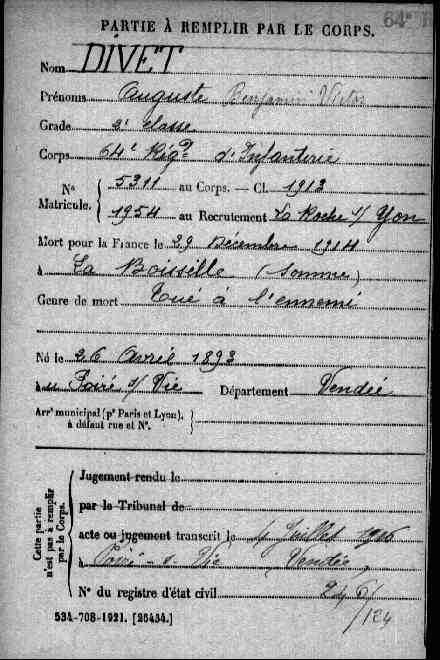 PARTIE À REMPLIR PAR LE CORPS.
64e
Nom DIVET
Prénoms Auguste Benjamin Victor
Grade 2e classe
Corps 64e Régt d'Infanterie
No Matricule. 5311 au Corps. — Cl. 1913
1954 au Recrutement La Roche s/ Yon
Mort pour la France le 29 Décembre 1914
à La Boisselle (Somme)
Genre de mort Tué à l'ennemi
Né le 26 Avril 1893
au Poiré s/ Vie Département Vendée
Arrt municipal (pr Paris et Lyon),
à défaut rue et No.
Cette partie n'est pas à remplir par le Corps.
Jugement rendu le
par le Tribunal de
acte ou jugement transcrit le Juillet
à Poiré-s-Vie (Vendée)
No du registre d'état civil
534-708-1921. [26434.]
/124